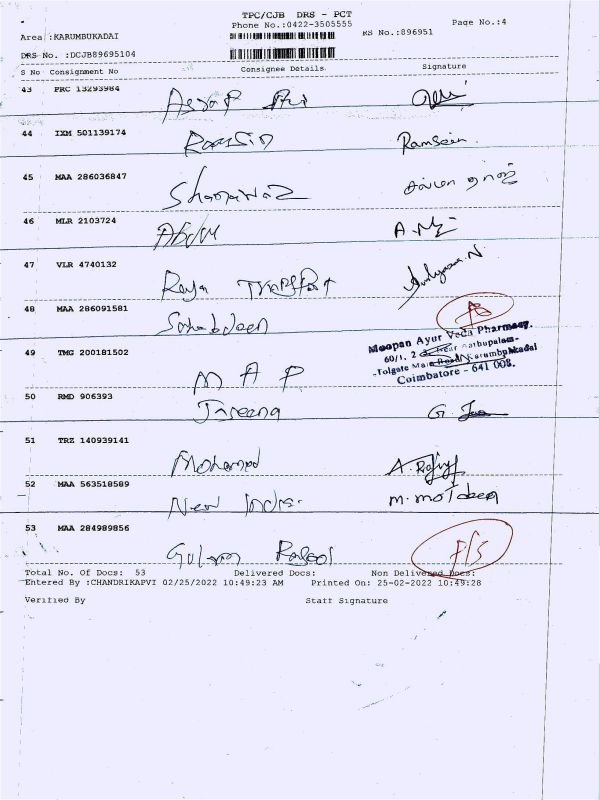 TPC/CJB DRS - PCT
Phone No.:0422-3505555 Page No.:4
Area :KARUMBUKADAI RS No.:896951
DRS No. :DCJB89695104
S No Consignment No Consignee Details Signature
43 PRC 13293984
44 IXM 501139174 Ramsin Ramseen
45 MAA 286036847 Shanawaz
46 MLR 2103724 Abdul
47 VLR 4740132 Raja Transport
48 MAA 286091581 Sahabdeen
Moopan Ayur Veda Pharmacy.
60/1, 2 Near Aathupalam-
-Tolgate Main Road, Karumbukadai
Coimbatore - 641 008.
49 TMG 200181502 M A P
50 RMD 906393 Jareena
51 TRZ 140939141 Mohamed
52 MAA 563518589 New India M. moideen
53 MAA 284989856 Gulam Rasool F/S
Total No. Of Docs: 53 Delivered Docs: Non Delivered Docs:
Entered By :CHANDRIKAPVI 02/25/2022 10:49:23 AM Printed On: 25-02-2022 10:49:28
Verified By Staff Signature